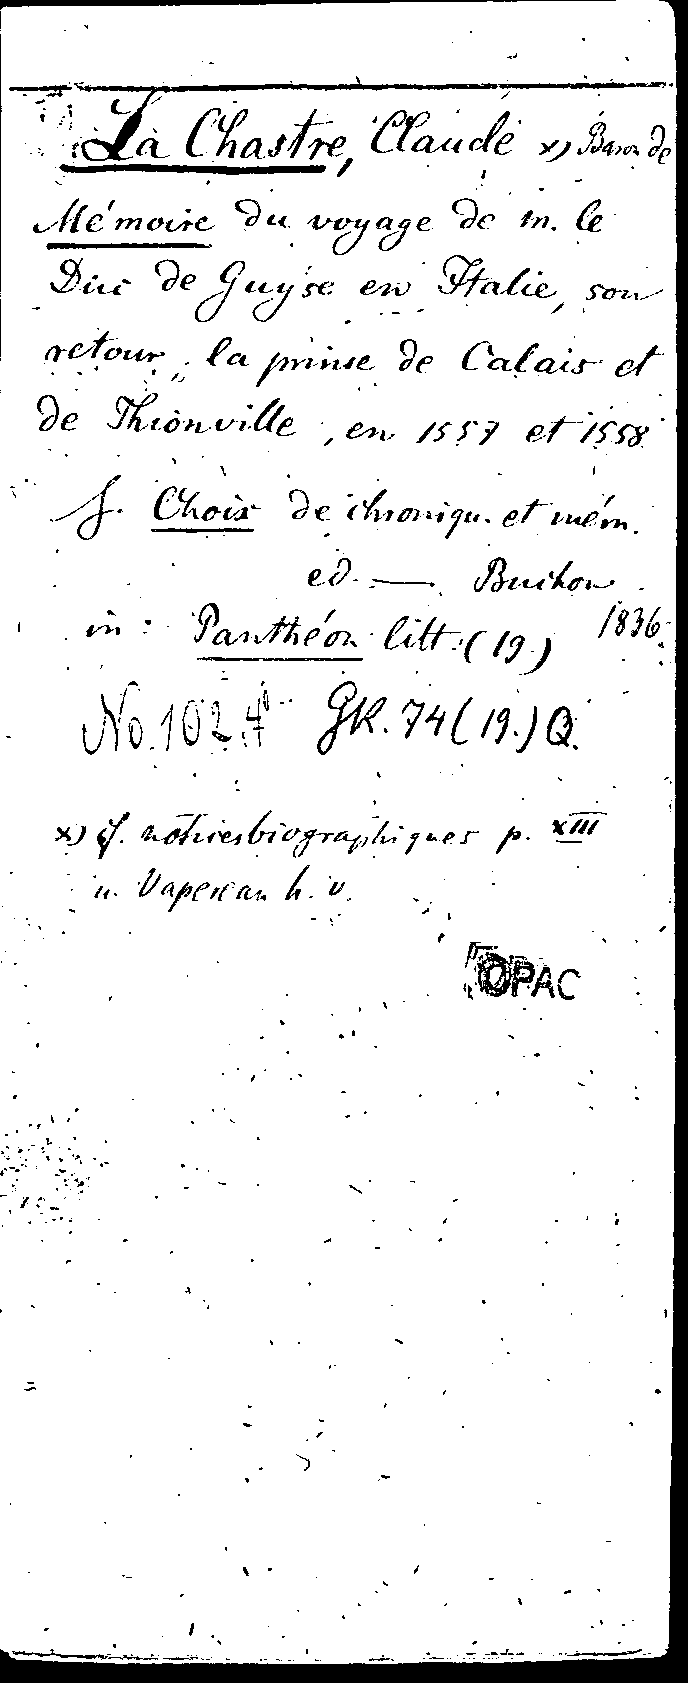 La Chastre, Claude x) Baron de
Mémoire du voyage de m. le
Duc de Guyse en Italie, son
retour, la prinse de Calais et
de Thionville, en 1557 et 1558
f. Choix de chroniqu. et mém.
ed. — Buchon
in: Panthéon litt. (19.) 1836.
No. 102.4° GK. 74 (19.) Q.
x) cf. notices biographiques p. XIII
u. Vapereau h. v.
OPAC